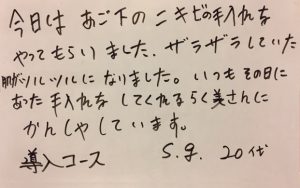 今日は あご下の ニキビの手入れを
やってもらいました。ザラザラしていた
肌がツルツルになりました。いつもその日に
あった手入れを してくれるらく美さんに
かんしゃしています。
導入コース S.g. 20代